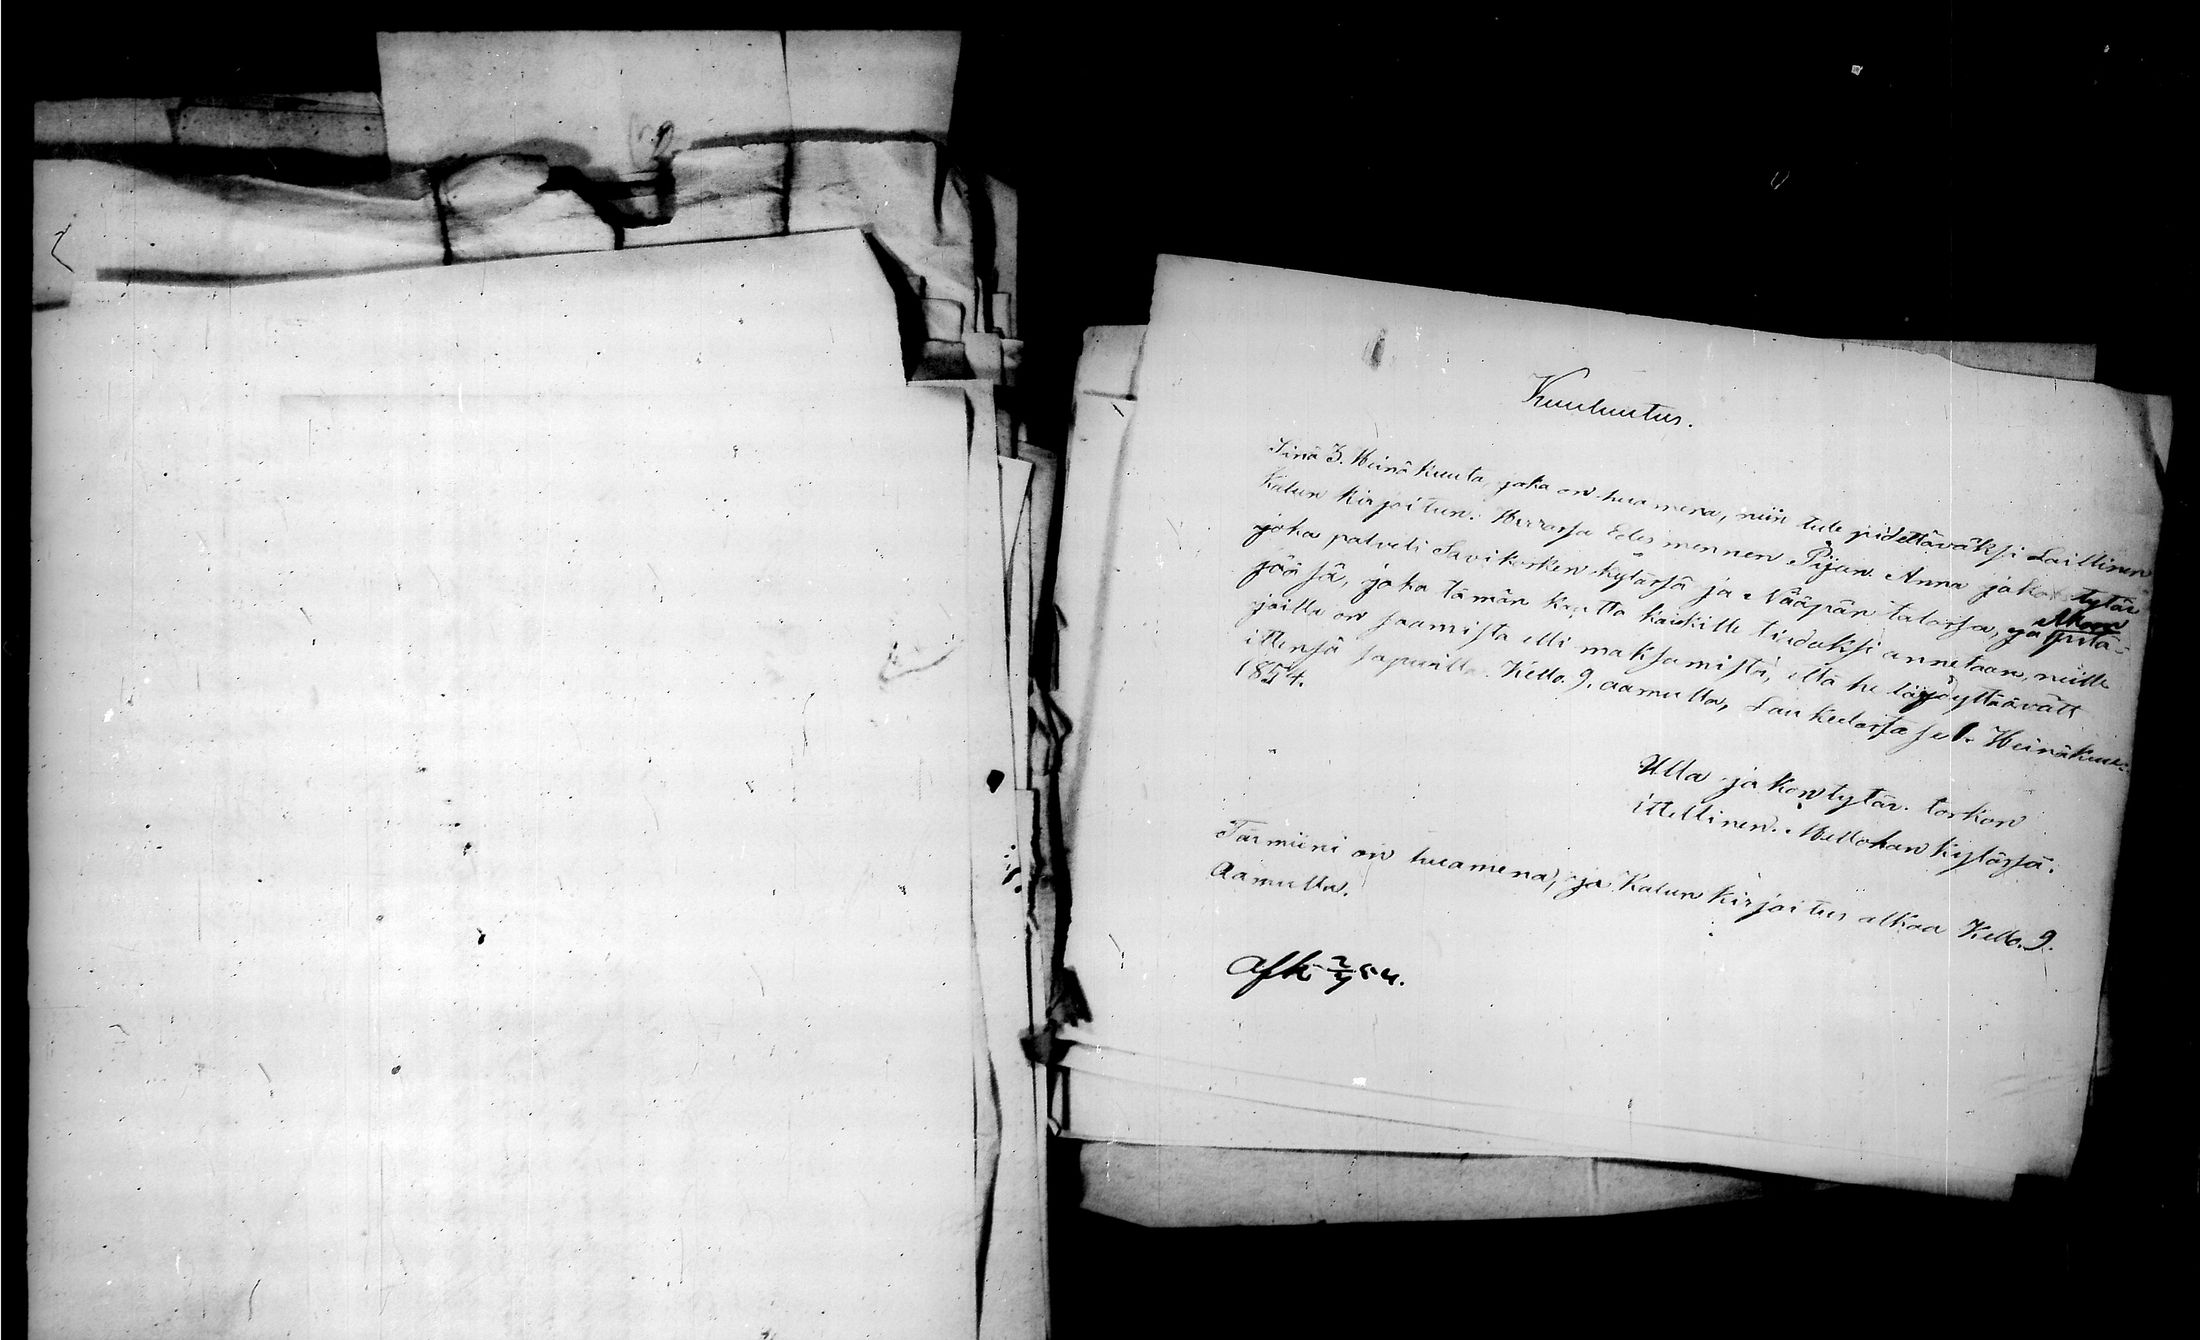 Kuuluutus.
Sinä 3. Heinä kuuta, joka on huamena, niin tule pidettäväksi Laillinen
Kalun kirjoitun. Herrassa Edes mennen Pijan Anna jako tytär
joka palveli Savikorken kylässä ja Nääpän talossa, ja Akaan pitä-
jääsä, joka tämän kautta kaikille tieduksi annetaan, niille
joilla on saamista elli maksamista, että he läysäyttäävätt
ittensä sapuvilla Kello. 9. aamulla, Laukeelasta se 1. Heinäkuu:
1854.
Ulla jakontytär. torkon
ittellinen. Mellohan kylässä.
Tärmiini on huamena, ja Kalun kirjoitus alkaa Kello. 9.
Aamulla.
Afk 2/7 54.